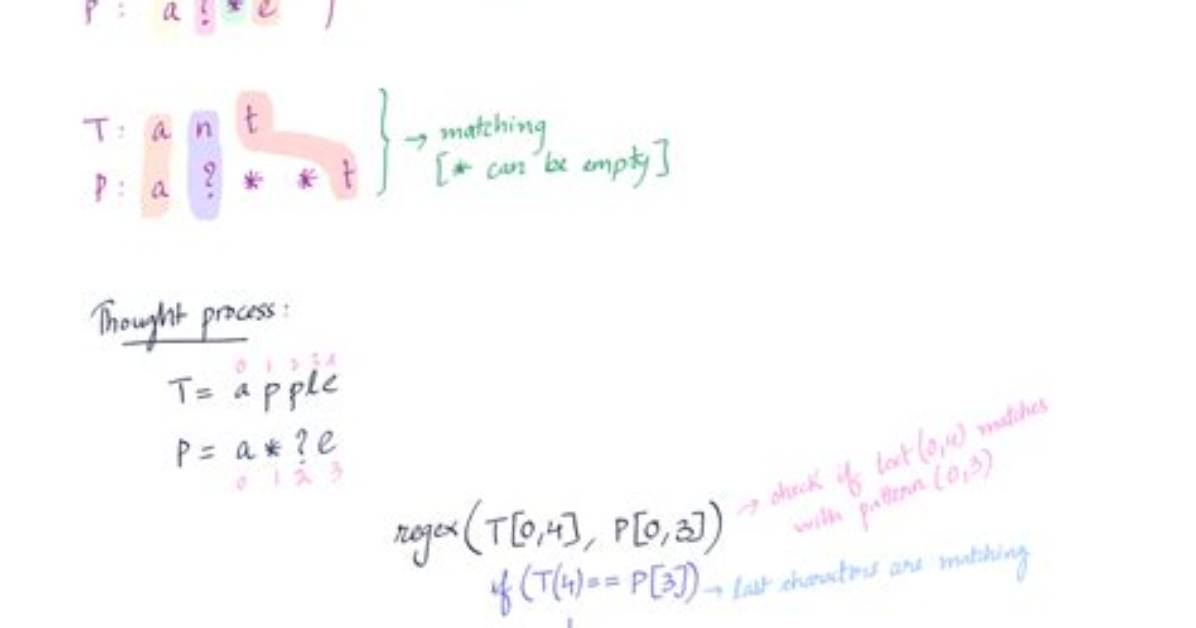 P: a ? * e }
T: a n t
P: a ? * * t
→ matching
[* can be empty]
Thought process:
0 1 2 3 4
T= apple
P= a*?e
0 1 2 3
regex(T[0,4], P[0,3])
→ check if text(0,4) matches
with pattern(0,3)
if (T(4)== P[3]) → last characters are matching